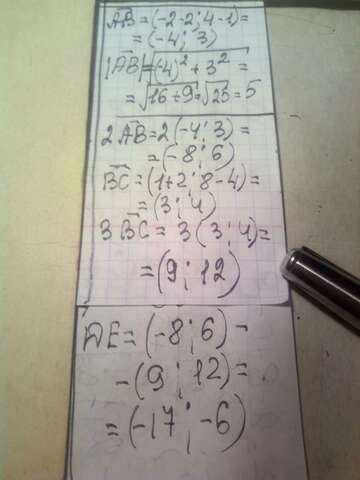 AB = (-2-2; 4-1) =
= (-4; 3)
|AB| = √(-4)² + 3² =
= √16 + 9 = √25 = 5
2AB = 2(-4; 3) =
= (-8; 6)
BC = (1+2; 8-4) =
= (3; 4)
3BC = 3(3; 4) =
= (9; 12)
DE = (-8; 6) -
- (9; 12) =
= (-17; -6)